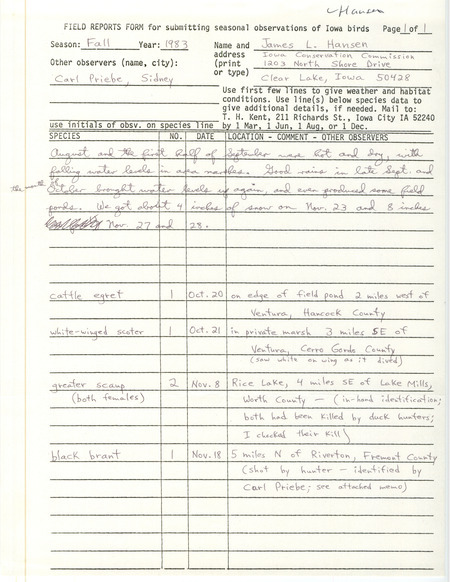 Hansen
FIELD REPORTS FORM for submitting seasonal observations of Iowa birds Page 1 of 1
Season: Fall Year: 1983
Name and address (print or type)
James L. Hansen
Iowa Conservation Commission
1203 North Shore Drive
Clear Lake, Iowa 50428
Other observers (name, city):
Carl Priebe, Sidney
Use first few lines to give weather and habitat
conditions. Use line(s) below species data to
give additional details, if needed. Mail to:
T. H. Kent, 211 Richards St., Iowa City IA 52240
by 1 Mar, 1 Jun, 1 Aug, or 1 Dec.
use initials of obsv. on species line
SPECIES NO. DATE LOCATION - COMMENT - OTHER OBSERVERS
August and the first half of September were hot and dry, with
falling water levels in area marshes. Good rains in late Sept. and
the month of
October brought water levels up again, and even produced some field
ponds. We got about 4 inches of snow on Nov. 23 and 8 inches
Nov. 27 and 28.
cattle egret 1 Oct. 20 on edge of field pond 2 miles west of
Ventura, Hancock County
white-winged scoter 1 Oct. 21 in private marsh 3 miles SE of
Ventura, Cerro Gordo County
(saw white on wing as it dived)
greater scaup 2 Nov. 8 Rice Lake, 4 miles SE of Lake Mills,
(both females) Worth County - (in-hand identification;
both had been killed by duck hunters;
I checked their kill)
black brant 1 Nov. 18 5 miles N of Riverton, Fremont County
(shot by hunter - identified by
Carl Priebe; see attached memo)